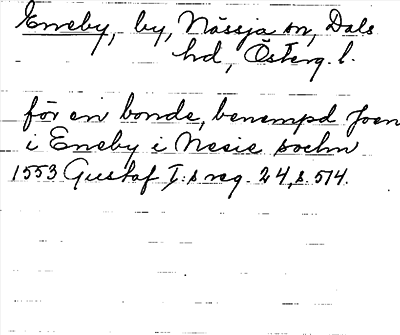 Eneby, by, Nässja sn, Dals
hd, Österg. l.
för en bonde, benempd Joen
i Eneby i Nesie sochn
1553 Gustaf I:s reg. 24, s. 514.